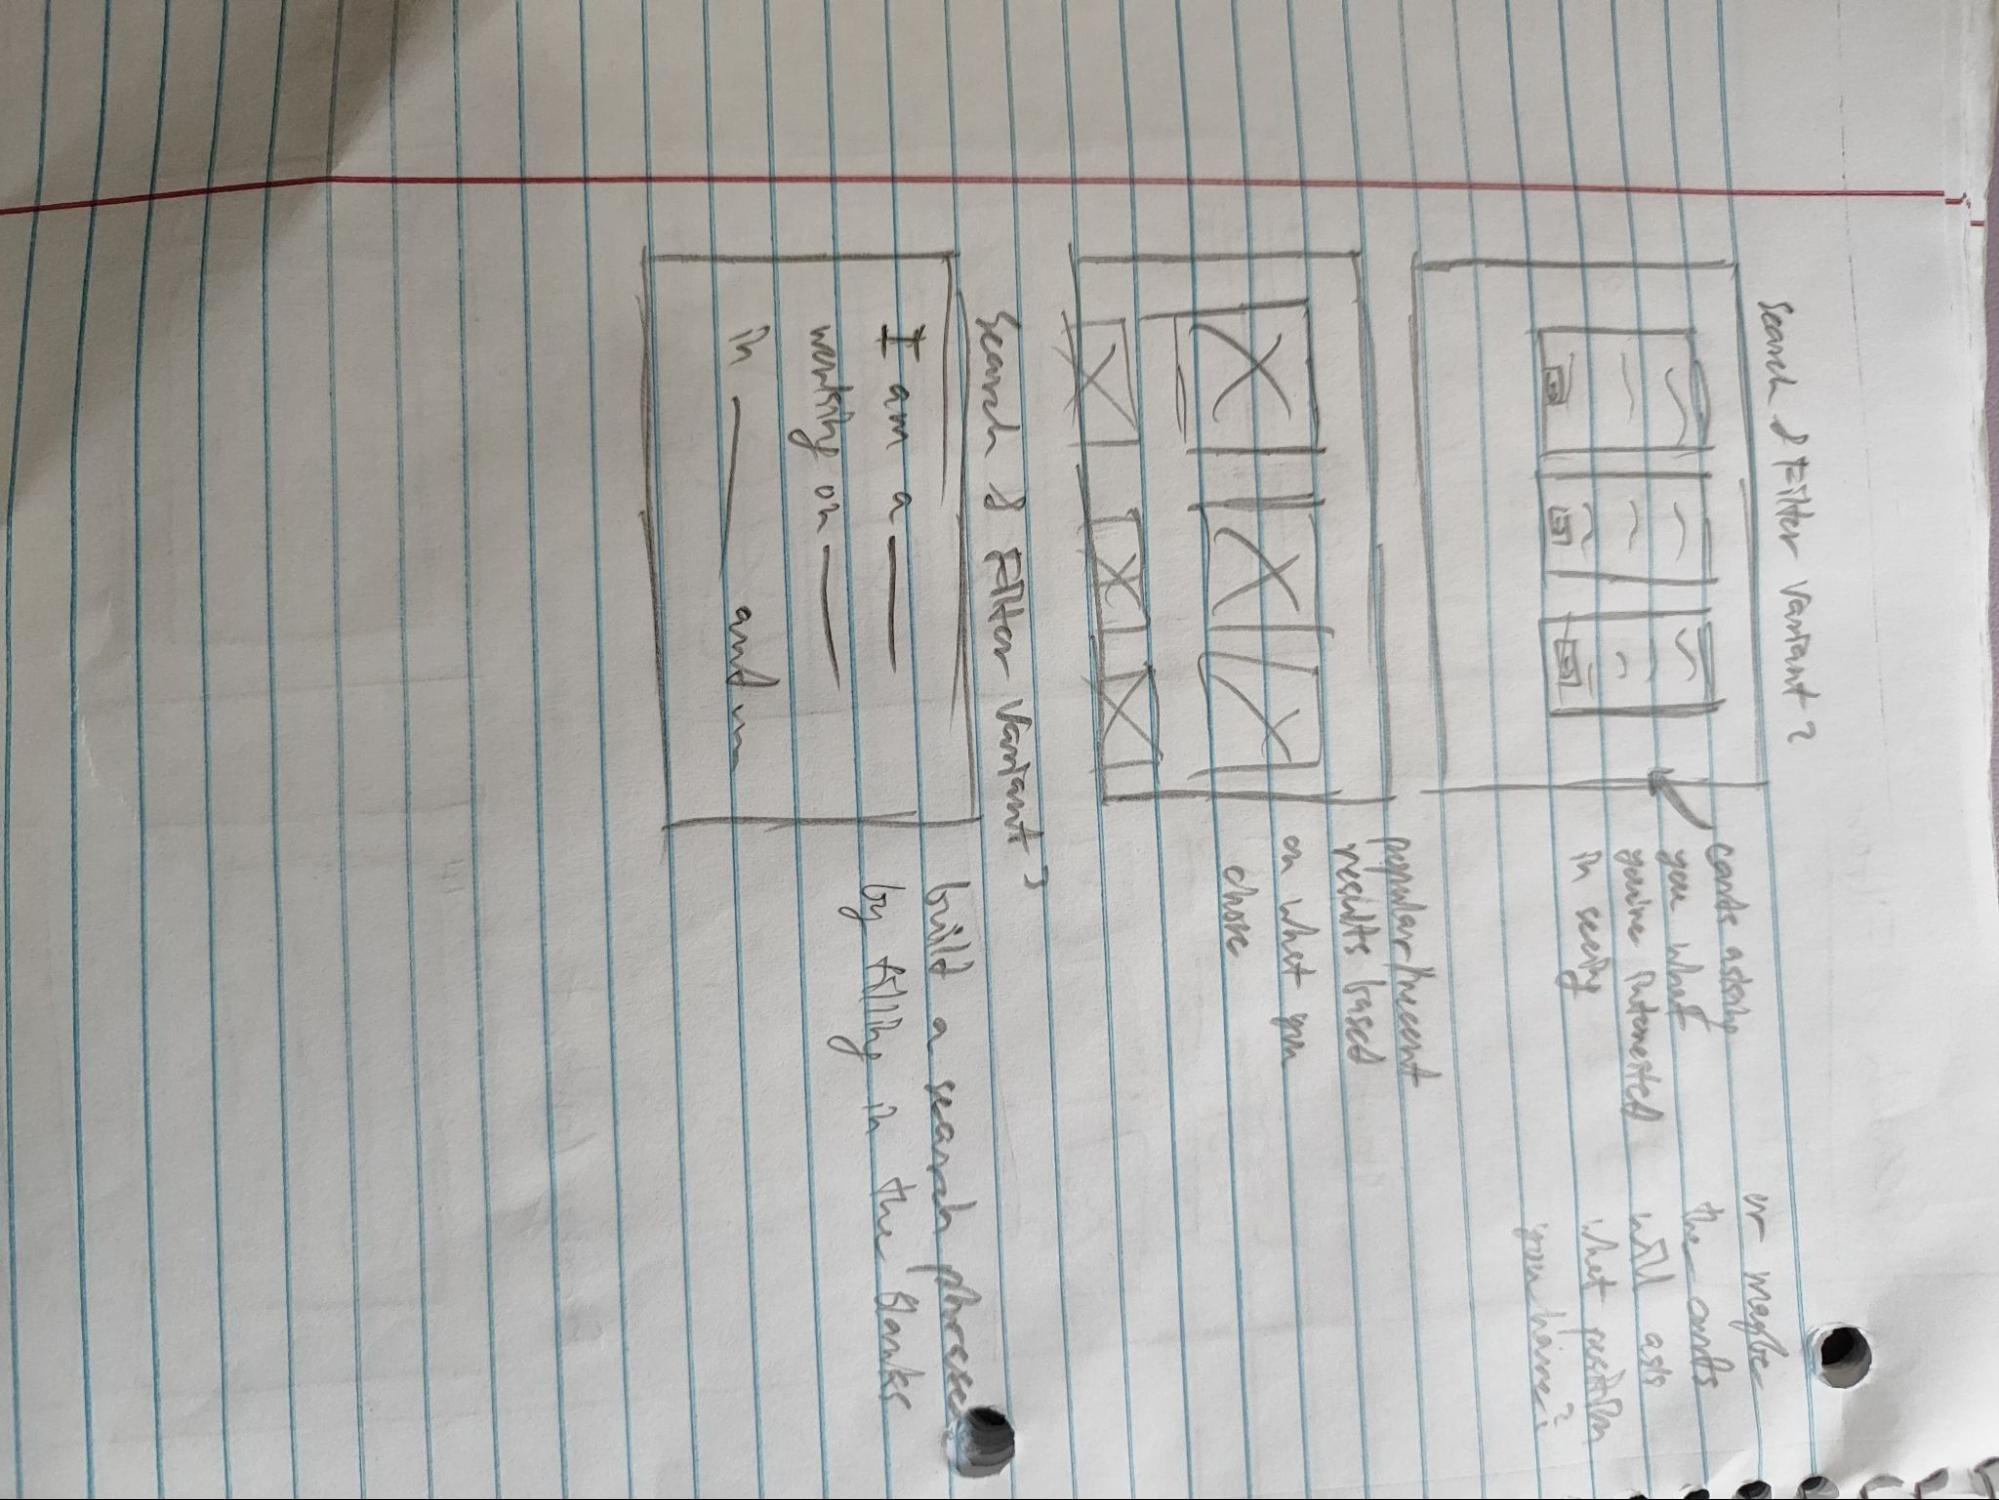 Search & Filter Variant 2
cards asking
you what
you're interested
in seeing
or maybe
the cards
will ask
what position
you have?
popular/recent
results based
on what you
chose
Search & Filter Variant 3
I am a
working on
in and
build a search phrase
by filling in the blanks